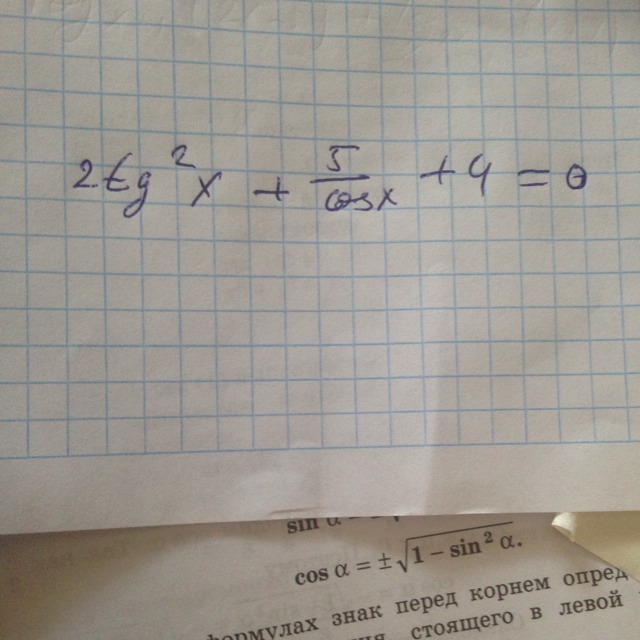 2tg²x + 5/cosx + 4 = 0
sin α =
cos α = ±√1 − sin² α.
формулах знак перед корнем опред
стоящего в левой